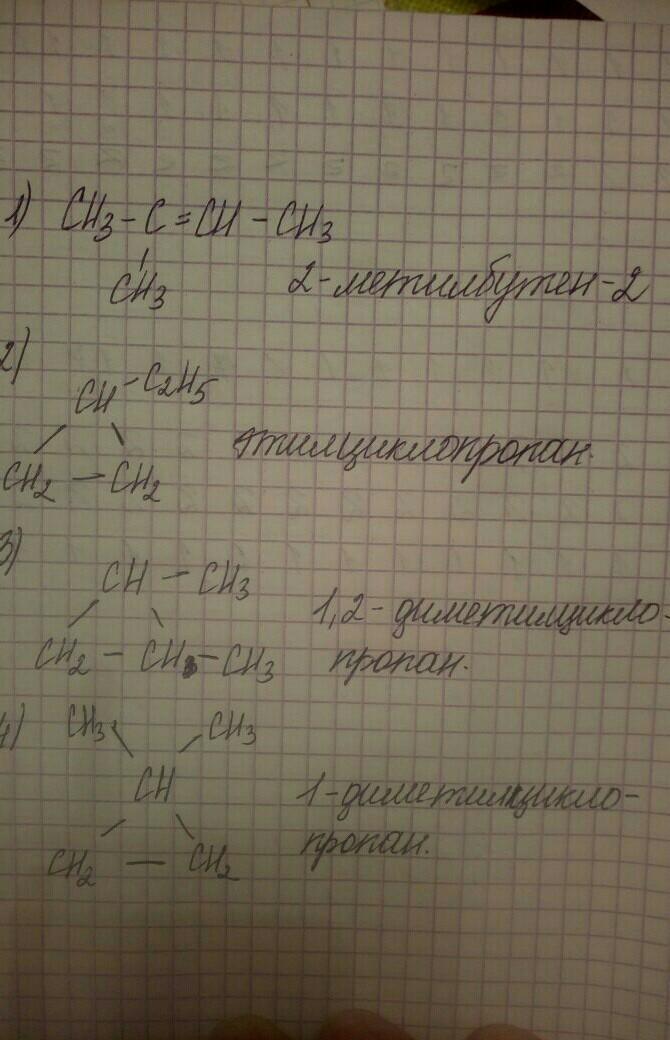 1) CH3 - C = CH - CH3
CH3
2-метилбутен-2
2)
CH - C2H5
CH2 - CH2
этилциклопропан.
3)
CH - CH3
CH2 - CH - CH3
1,2-диметилцикло-
пропан.
4)
CH3 CH3
CH
CH2 - CH2
1-диметилцикло-
пропан.